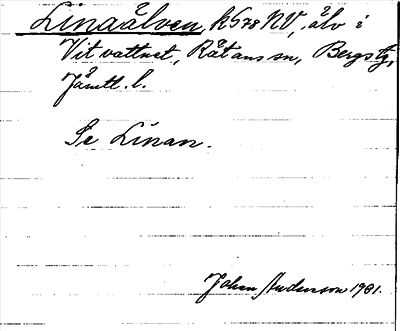 Linaälven, kS78 NV, älv i
Vitvattnet, Rätans sn, Bergs tg,
Jämtl. l.
Se Linan.
Johan Anderson 1981.